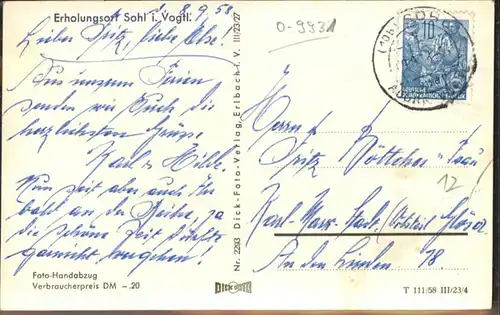 Erholungsort Sohl i. Vogtl.
8.9.58
Lieber Fritz, liebe Else!
Aus unserm Ferien
senden wir Euch die
herzlichsten Grüße
Karl u. Hilde.
Nun seit aber auch Ihr
bald an der Reihe, ja
die schöne Zeit dürfte
garnicht vergehen!
Foto-Handabzug
Verbraucherpreis DM -.20
Nr. 2293 Dick-Foto-Verlag, Erlbach i. V. III/23/27
DICK FOTO
0-9831
10
DEUTSCHE DEMOKRATISCHE REPUBLIK
Herrn
Fritz Böttcher u. Frau
12
Karl-Marx-Stadt, Ortsteil
An den Linden 18.
T 111/58 III/23/4